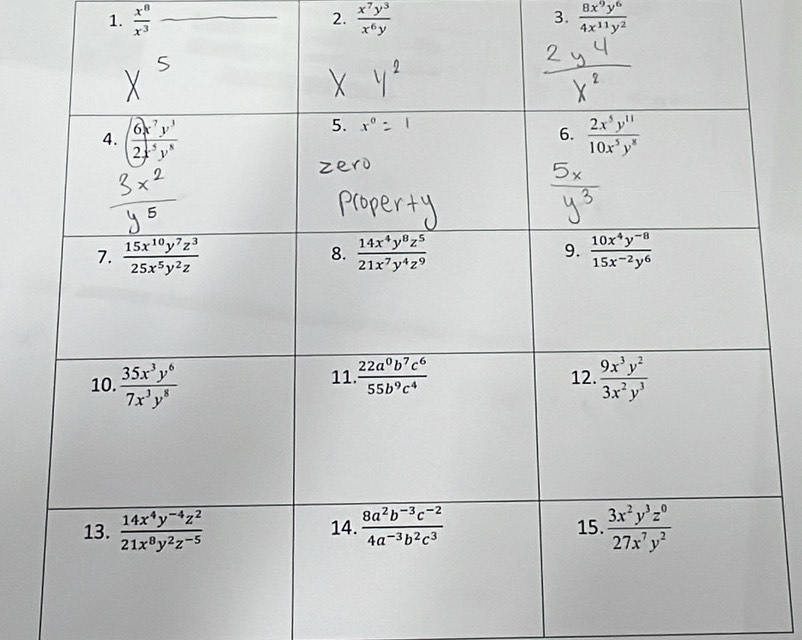 1. x⁸/x³
2. x⁷y³/x⁶y
3. 8x⁹y⁶/4x¹¹y²
x⁵
x y²
2y⁴/x²
4. 6x⁷y³/2x⁵y⁸
5. x⁰ = 1
6. 2x⁵y¹¹/10x⁵y⁸
3x²/y⁵
zero
property
5x/y³
7. 15x¹⁰y⁷z³/25x⁵y²z
8. 14x⁴y⁸z⁵/21x⁷y⁴z⁹
9. 10x⁴y⁻⁸/15x⁻²y⁶
10. 35x³y⁶/7x³y⁸
11. 22a⁰b⁷c⁶/55b⁹c⁴
12. 9x³y²/3x²y³
13. 14x⁴y⁻⁴z²/21x⁸y²z⁻⁵
14. 8a²b⁻³c⁻²/4a⁻³b²c³
15. 3x²y³z⁰/27x⁷y²